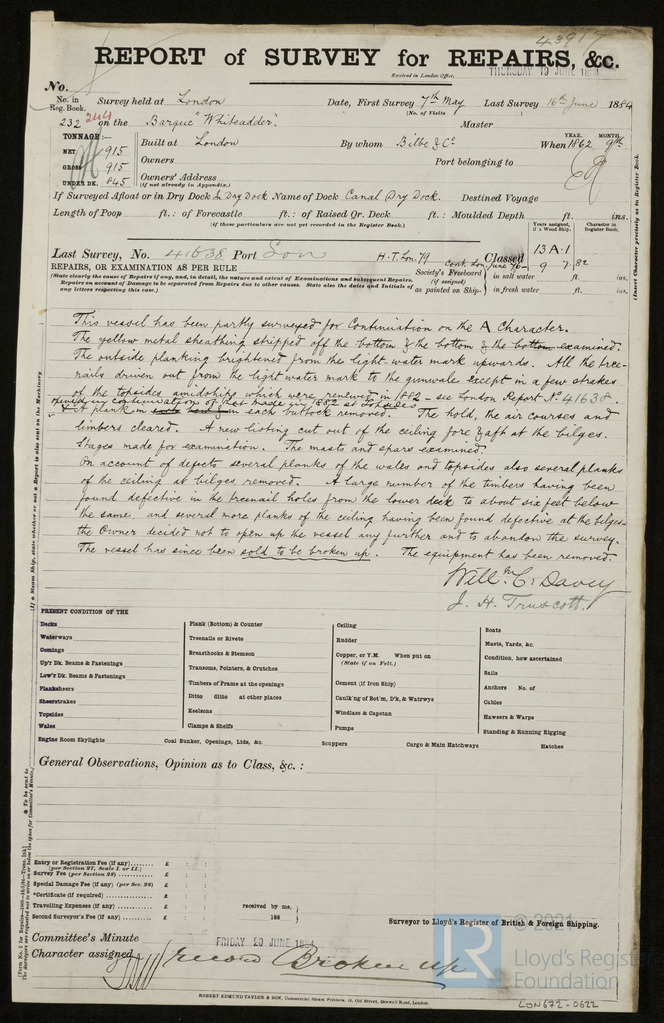 43917
REPORT of SURVEY for REPAIRS, &c.
Received in London Office,
THURSDAY 19 JUNE 1884
No.
No. in Reg. Book. Survey held at London Date, First Survey 7th May Last Survey 16th June 1884
(No. of Visits
232 244 on the Barque "Whiteadder". Master
TONNAGE:—
NET 915
GROSS 915
UNDER DK. 845
Built at London By whom Bilbe & Co When 1862 9th
YEAR. MONTH.
Owners Port belonging to
Owners' Address
(if not already in Appendix.)
If Surveyed Afloat or in Dry Dock In Dry Dock Name of Dock Canal Dry Dock. Destined Voyage
Length of Poop ft.: of Forecastle ft.: of Raised Qr. Deck ft.: Moulded Depth ft. ins.
(if these particulars are not yet recorded in the Register Book.)
Years assigned, if a Wood Ship. Character in Register Book.
Last Survey, No. 41638 Port Lon H.T. Lon. 79 Classed 13 A·1
Cont. Lon June 70 - 9 7.82
REPAIRS, OR EXAMINATION AS PER RULE
(State clearly the cause of Repairs (if any, and, in detail, the nature and extent of Examinations and subsequent Repairs.
Repairs on account of Damage to be separated from Repairs due to other causes. State also the dates and Initials of
any letters respecting this case.)
Society's Freeboard (if assigned) as painted on Ship—
in salt water ft. ins.
in fresh water ft. ins.
This vessel has been partly surveyed for Continuation on the A Character.
The yellow metal sheathing stripped off the bottom & the bottom & the bottom examined.
The outside planking brightened from the light water mark upwards. All the tree-
nails driven out from the light water mark to the gunwale except in a few strakes
of the topsides amidships which were renewed in 1882 – see London Report No 41638.
continuation of that made in 1882 at topsides
& A plank in each buttock removed. The hold, the air courses and
limbers cleared. A new listing cut out of the ceiling fore & aft at the bilges.
Stages made for examination. The masts and spars examined.
On account of defects several planks of the wales and topsides also several planks
of the ceiling at bilges removed. A large number of the timbers having been
found defective in the treenail holes from the lower deck to about six feet below
the same, and several more planks of the ceiling having been found defective at the bilges-
the Owner decided not to open up the vessel any further and to abandon the survey.
The vessel has since been sold to be broken up. The equipment has been removed.
Willm. C. Davey
J. H. Truscott.
PRESENT CONDITION OF THE
Decks
Waterways
Comings
Up'r Dk. Beams & Fastenings
Low'r Dk. Beams & Fastenings
Planksheers
Sheerstrakes
Topsides
Wales
Plank (Bottom) & Counter
Treenails or Rivets
Breasthooks & Stemson
Transoms, Pointers, & Crutches
Timbers of Frame at the openings
Ditto ditto at other places
Keelsons
Clamps & Shelfs
Ceiling
Rudder
Copper, or Y.M. When put on
(State if on Felt.)
Cement (if Iron Ship)
Caulk'ng of Bot'm, D'k, & Watrwys
Windlass & Capstan
Pumps
Boats
Masts, Yards, &c.
Condition, how ascertained
Sails
Anchors No. of
Cables
Hawsers & Warps
Standing & Running Rigging
Engine Room Skylights Coal Bunker, Openings, Lids, &c. Scuppers Cargo & Main Hatchways Hatches
General Observations, Opinion as to Class, &c. :
Entry or Registration Fee (if any) £ : :
(per Section 27, Scale I. or II.)
Survey Fee (per Section 28) £ : :
Special Damage Fee (if any) (per Sec. 28) £ : :
*Certificate (if required) £ : :
Travelling Expenses (if any) £ : : received by me,
Second Surveyor's Fee (if any) £ : : 188
Surveyor to Lloyd's Register of British & Foreign Shipping.
Committee's Minute FRIDAY 20 JUNE 1884
Character assigned Record Broken up
ROBERT EDMUND TAYLOR & SON, Commercial Steam Printers, 19, Old Street, Goswell Road, London.
(Insert Character precisely as in Register Book.)
(If a Steam Ship, state whether or not a Report is also sent on the Machinery.
© 2021
LR
Lloyd's Register
Foundation
LON672-0622